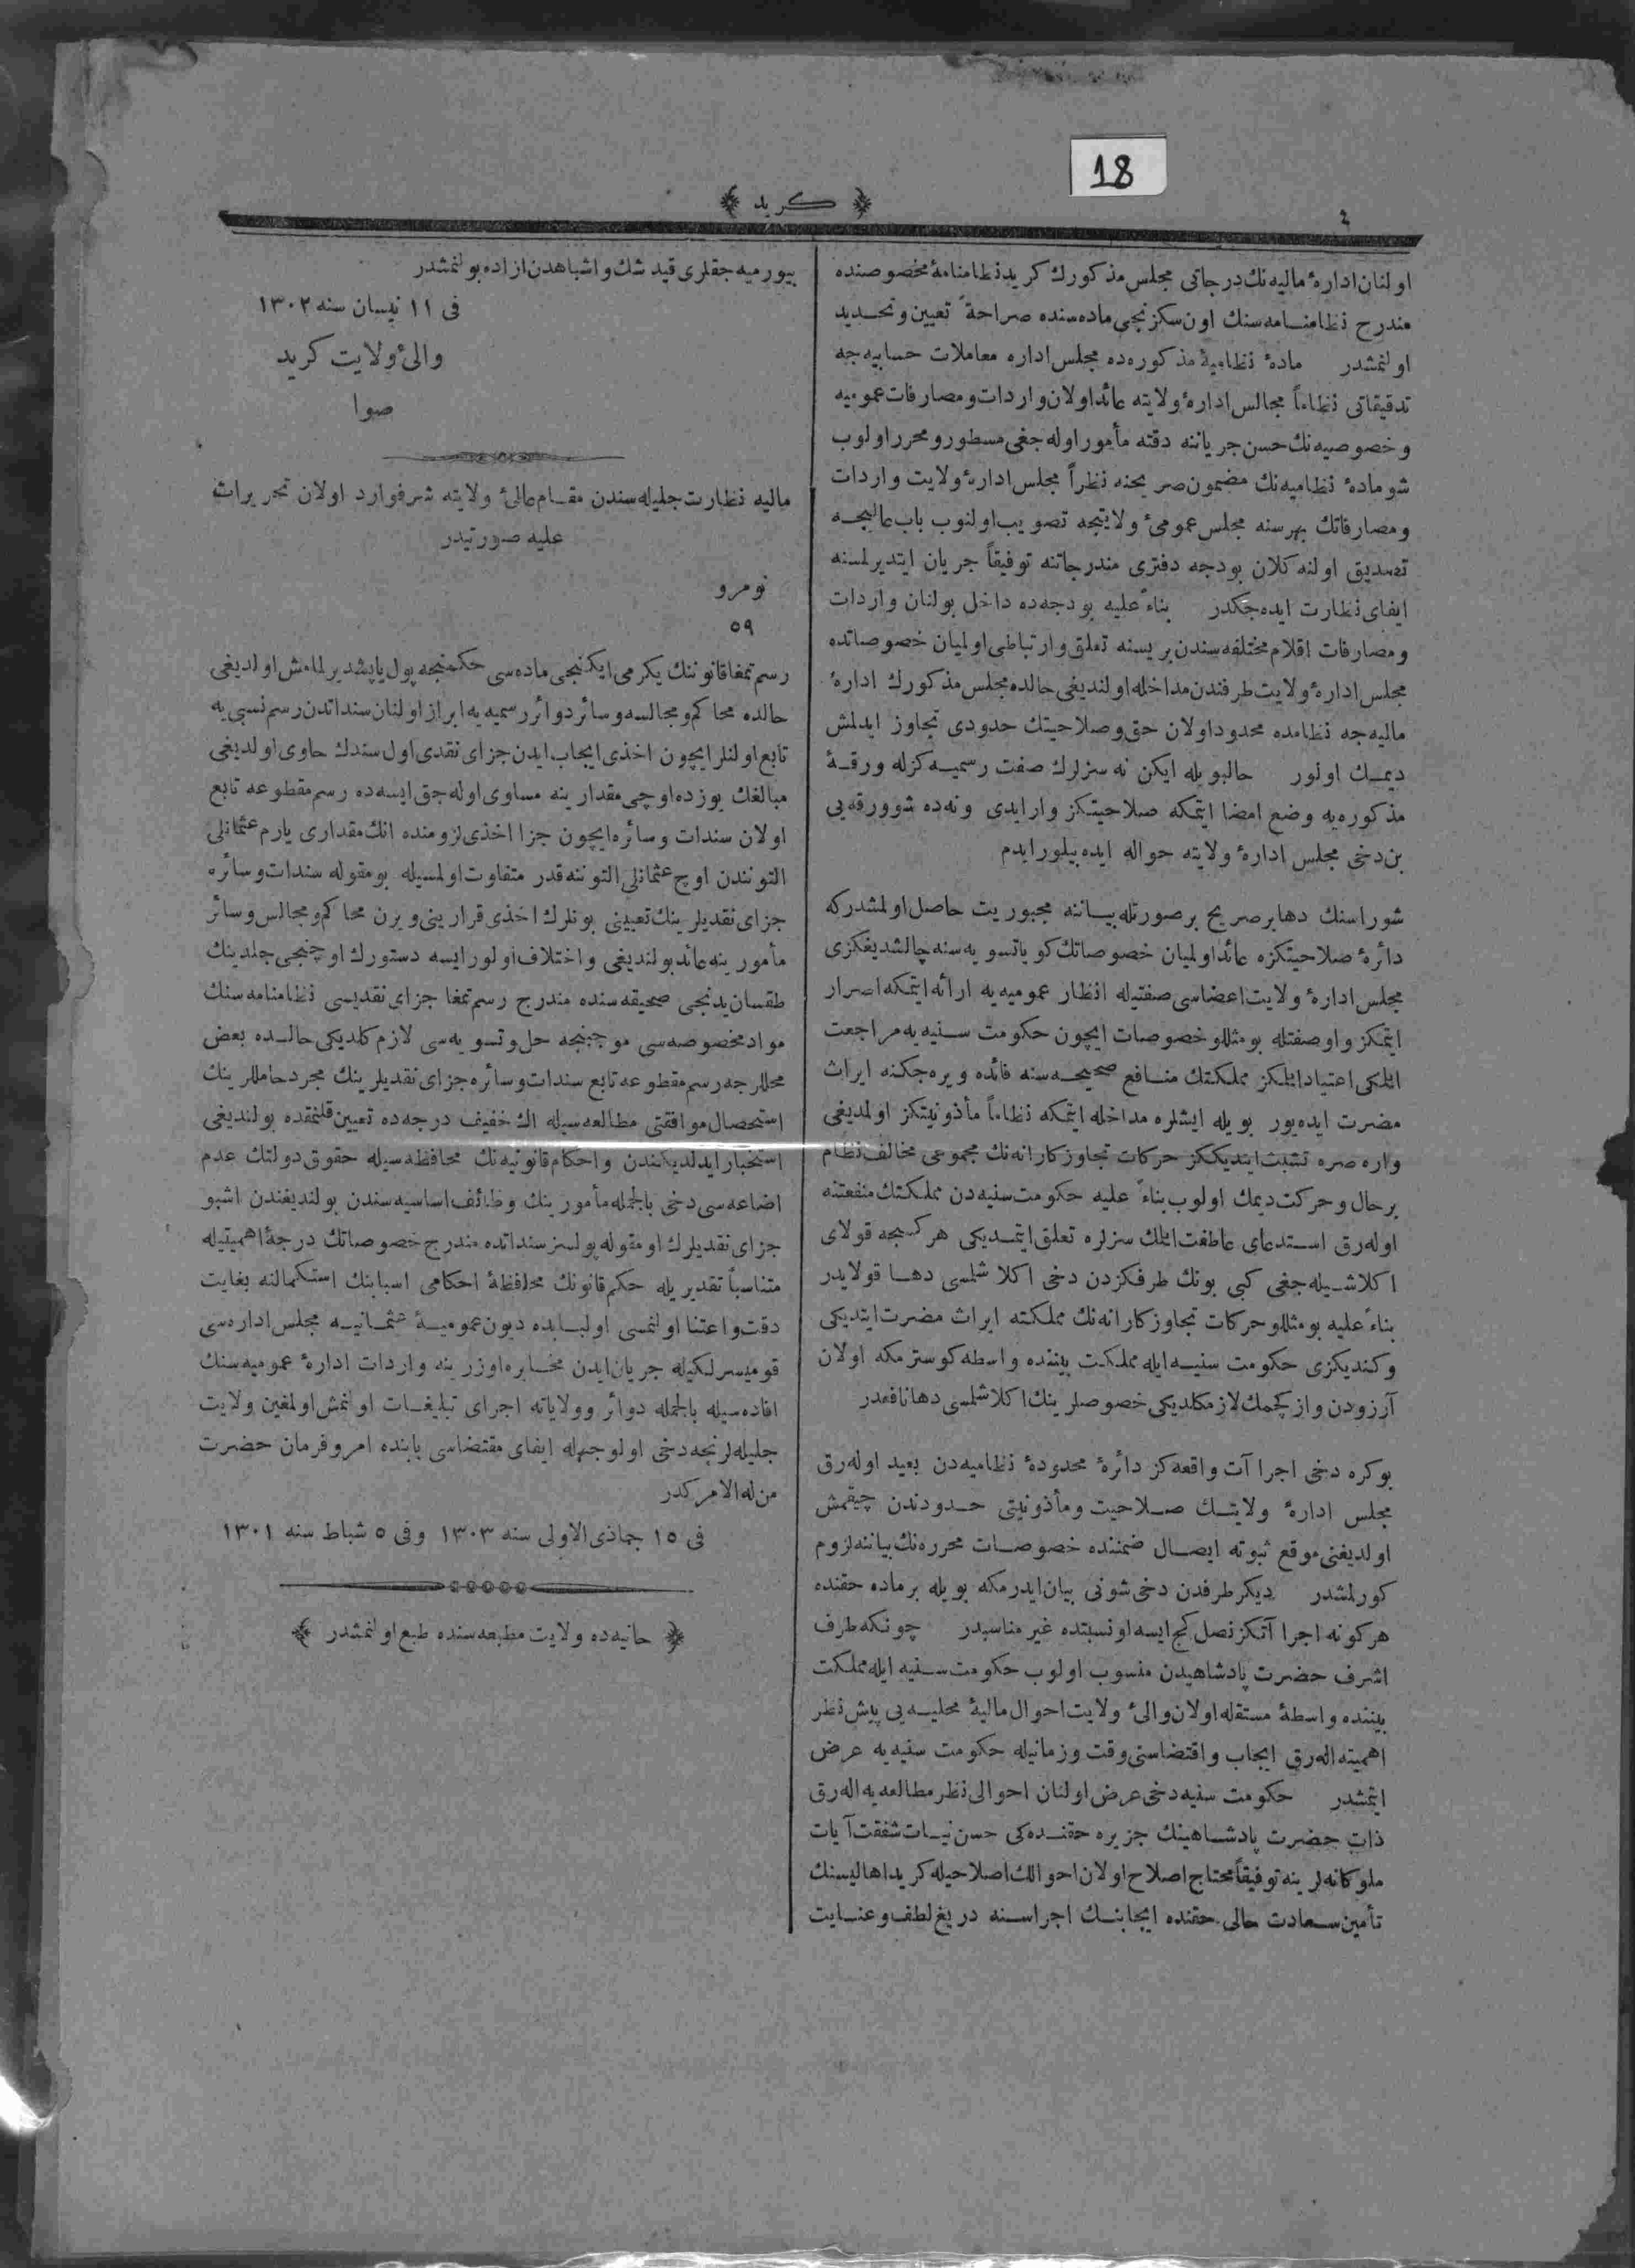 18
٤
كريد
اولنان ادارۀ ماليه‌نك درجاتى مجلس مذكورك كريد نظامنامۀ مخصوصنده
مندرج نظامنامه‌سنك اون سكزنجى ماده‌سنده صراحةً تعيين وتحديد
اولنمشدر ماده‌ٔ نظاميۀ مذكوره‌ده مجلس اداره معاملات حسابيه‌جه
تدقيقاتى نظاماً مجالس ادارۀ ولايته عائد اولان واردات ومصارفات عموميه
وخصوصيه‌نك حسن جرياننه دقته مأمور اوله‌جغى مسطور ومحرر اولوب
شو ماده‌ٔ نظاميه‌نك مضمون صريحنه نظراً مجلس ادارۀ ولايت واردات
ومصارفاتك بهر سنه مجلس عمومئ ولايتجه تصويب اولنوب باب عاليجه
تصديق اولنه‌كلان بودجه دفترى مندرجاتنه توفيقاً جريان ايتديرلمسنه
ايفاى نظارت ايده‌جكدر بناءً عليه بودجه‌ده داخل بولنان واردات
ومصارفات اقلام مختلفه‌سندن بريسنه تعلق وارتباطى اولميان خصوصاتده
مجلس ادارۀ ولايت طرفندن مداخله اولنديغى حالده مجلس مذكورك ادارۀ
ماليه‌جه نظامده محدود اولان حق وصلاحيتك حدودى تجاوز ايدلمش
ديمك اولور حالبويله ايكن نه سزلرك صفت رسميه‌كزله ورقۀ
مذكوره‌يه وضع امضا ايتمكه صلاحيتكز وار ايدى ونه‌ده شو ورقه‌يى
بن دخى مجلس ادارۀ ولايته حواله ايده‌بيلور ايدم
شوراسنك دها بر صريح بر صورتله بياننه مجبوريت حاصل اولمشدركه
دائرۀ صلاحيتكزه عائد اولميان خصوصاتك كويا تسويه‌سنه چالشديغكزى
مجلس ادارۀ ولايت اعضاسى صفتيله انظار عموميه‌يه ارائه ايتمكه اصرار
ايتمكز واو صفتله بو مثللو خصوصات ايچون حكومت سنيه‌يه مراجعت
ايلكى اعتياد ايلمكز مملكتك منافع صحيحه‌سنه فائده ويره‌جكنه ايراث
مضرت ايده‌يور بويله ايشلره مداخله ايتمكه نظاماً مأذونيتكز اولمديغى
واره صره تشبث ايتديككز حركات تجاوزكارانه‌نك مجموعى مخالف نظام
بر حال وحركت ديمك اولوب بناءً عليه حكومت سنيه‌دن مملكتك منفعتنه
اوله‌رق استدعاى عاطفت ايلمك سزلره تعلق ايتمديكى هر كسجه قولاى
اكلاشيله‌جغى كبى بونك طرفكزدن دخى اكلاشلمسى دها قولايدر
بناءً عليه بو مثللو حركات تجاوزكارانه‌نك مملكته ايراث مضرت ايتديكى
وكنديكزى حكومت سنيه ايله مملكت بيننده واسطه كوسترمكه اولان
آرزودن واز كچمك لازمكلديكى خصوصلرينك اكلاشلمسى دها نافعدر
بو كره دخى اجراآت واقعه‌كز دائرۀ محدودۀ نظاميه‌دن بعيد اوله‌رق
مجلس ادارۀ ولايتك صلاحيت ومأذونيتى حدودندن چيقمش
اولديغنى موقع ثبوته ايصال ضمننده خصوصات محرره‌نك بياننه لزوم
كورلمشدر ديكر طرفدن دخى شونى بيان ايدرمكه بويله بر ماده حقنده
هركونه اجراآتكز نصل كج ايسه او نسبتده غير مناسبدر چونكه طرف
اشرف حضرت پادشاهيدن منسوب اولوب حكومت سنيه ايله مملكت
بيننده واسطۀ مستقله اولان والئ ولايت احوال ماليۀ محليه‌يى پيش نظر
اهميته اله‌رق ايجاب واقتضاسنى وقت وزمانيله حكومت سنيه‌يه عرض
ايتمشدر حكومت سنيه دخى عرض اولنان احوالى نظر مطالعه‌يه اله‌رق
ذات حضرت پادشاهينك جزيره حقنده‌كى حسن نيات شفقت آيات
ملوكانه‌لرينه توفيقاً محتاج اصلاح اولان احوالك اصلاحيله كريد اهاليسنك
تأمين سعادت حالى حقنده ايجابنك اجراسنه دريغ لطف وعنايت
بيورميه‌جقلرى قيد شك واشباهدن ازاده بولنمشدر
فى ١١ نيسان سنه ١٣٠٢
والئ ولايت كريد
صوا
ماليه نظارت جليله‌سندن مقام عالئ ولايته شرفوارد اولان تحريرات
عليه صورتيدر
نومرو
٥٩
رسم تمغا قانوننك يكرمى ايكنجى ماده‌سى حكمنجه پول ياپشديرلمامش اولديغى
حالده محاكم ومجالسه وسائر دوائر رسميه‌يه ابراز اولنان سنداتدن رسم نسبى‌يه
تابع اولنلر ايچون اخذى ايجاب ايدن جزاى نقدى اول سندك حاوى اولديغى
مبالغك يوزده اوچى مقدارينه مساوى اوله‌جق ايسه‌ده رسم مقطوعه تابع
اولان سندات وسائره ايچون جزا اخذى لزومنده انك مقدارى يارم عثمانلى
التونندن اوچ عثمانلى التوننه قدر متفاوت اولمسيله بو مقوله سندات وسائره
جزاى نقديلرينك تعيينى بونلرك اخذى قرارينى ويرن محاكم ومجالس وسائر
مأمورينه عائد بولنديغى واختلاف اولور ايسه دستورك اوچنجى جلدينك
طقسان يدنجى صحيفه‌سنده مندرج رسم تمغا جزاى نقديسى نظامنامه‌سنك
مواد مخصوصه‌سى موجبنجه حل وتسويه‌سى لازم كلديكى حالده بعض
محللرجه رسم مقطوعه تابع سندات وسائره جزاى نقديلرينك مجرد حاملارينك
استحصال موافقتى مطالعه‌سيله اك خفيف درجه‌ده تعيين قلنمقده بولنديغى
استخبار ايدلديكندن واحكام قانونيه‌نك محافظه‌سيله حقوق دولتك عدم
اضاعه‌سى دخى بالجمله مأمورينك وظائف اساسيه‌سندن بولنديغندن اشبو
جزاى نقديلرك او مقوله پولسز سنداتده مندرج خصوصاتك درجۀ اهميتيله
متناسباً تقديريله حكم قانونك محافظۀ احكامى اسبابنك استكمالنه بغايت
دقت واعتنا اولنمسى اولبابده ديون عموميۀ عثمانيه مجلس اداره‌سى
قوميسرلكيله جريان ايدن مخابره اوزرينه واردات ادارۀ عموميه‌سنك
افاده‌سيله بالجمله دوائر وولاياته اجراى تبليغات اولنمش اولمغين ولايت
جليله‌لرنجه دخى اولوجهله ايفاى مقتضاسى بابنده امر وفرمان حضرت
من له الامركدر
فى ١٥ جماذى الاولى سنه ١٣٠٣ وفى ٥ شباط سنه ١٣٠١
حانيه‌ده ولايت مطبعه‌سنده طبع اولنمشدر